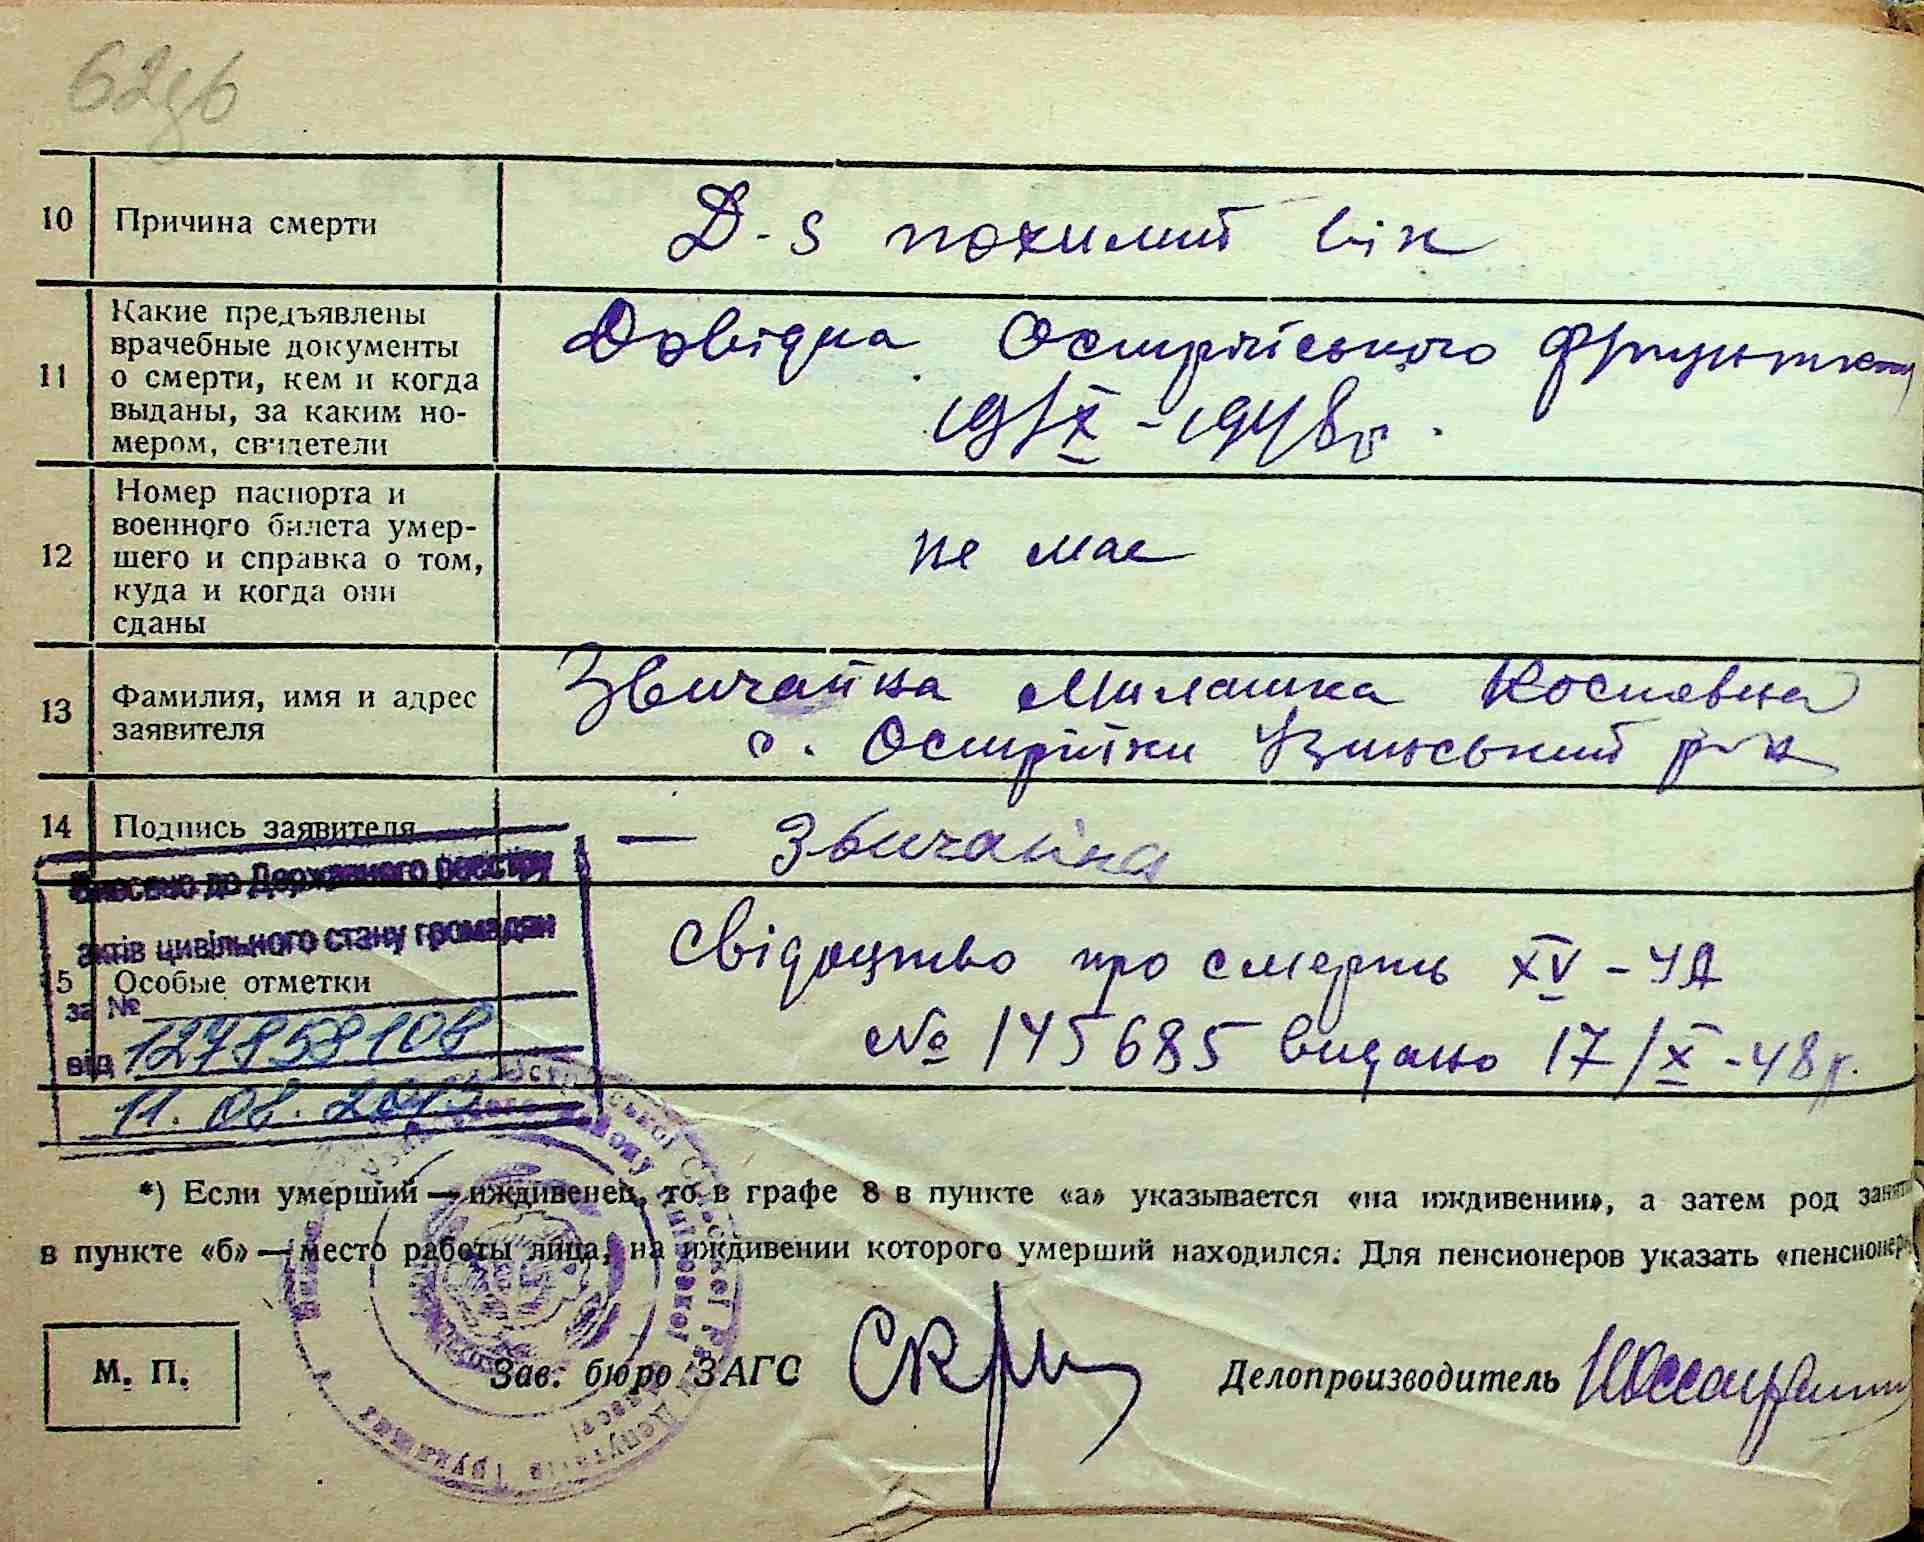 10 Причина смерти
Д-s похилий вік
11 Какие предъявлены
врачебные документы
о смерти, кем и когда
выданы, за каким но-
мером, свидетели
Довідка Острійського
19/X-1948р.
12 Номер паспорта и
военного билета умер-
шего и справка о том,
куда и когда они
сданы
не має
13 Фамилия, имя и адрес
заявителя
Звичайна Милашка
с. Острійки Узинський р-н
14 Подпись заявителя
— Звичайна
Внесено до Державного реєстру
актів цивільного стану громадян
за №
127858108
від
11.02.2013
5 Особые отметки
Свідоцтво про смерть XV-УА
№ 145685 видано 17/X-48р.
*) Если умерший — иждивенец, то в графе 8 в пункте «а» указывается «на иждивении», а затем род
в пункте «б» — место работы лица, на иждивении которого умерший находился. Для пенсионеров указать
М. П.
Зав. бюро ЗАГС
Делопроизводитель